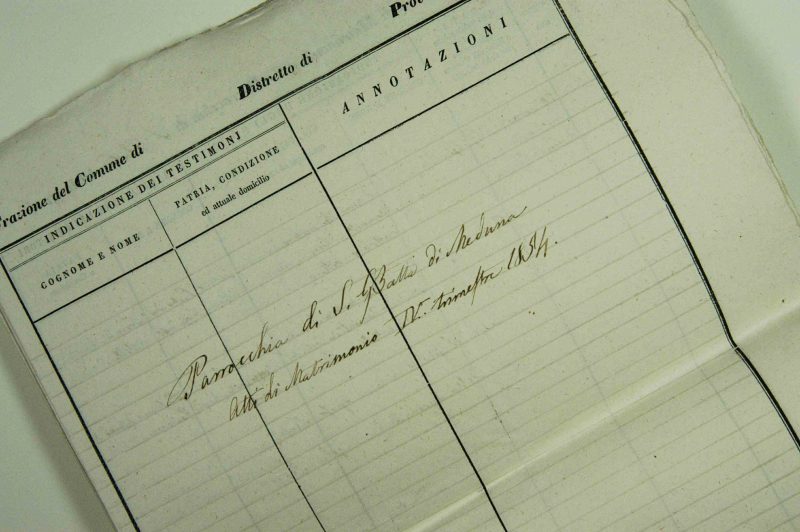 Frazione del Comune di Distretto di
INDICAZIONE DEI TESTIMONJ
COGNOME E NOME
PATRIA, CONDIZIONE
ed attuale domicilio
ANNOTAZIONI
Parrocchia di S. GBatta di Meduna
Atti di Matrimonio IV. trimestre 1834.